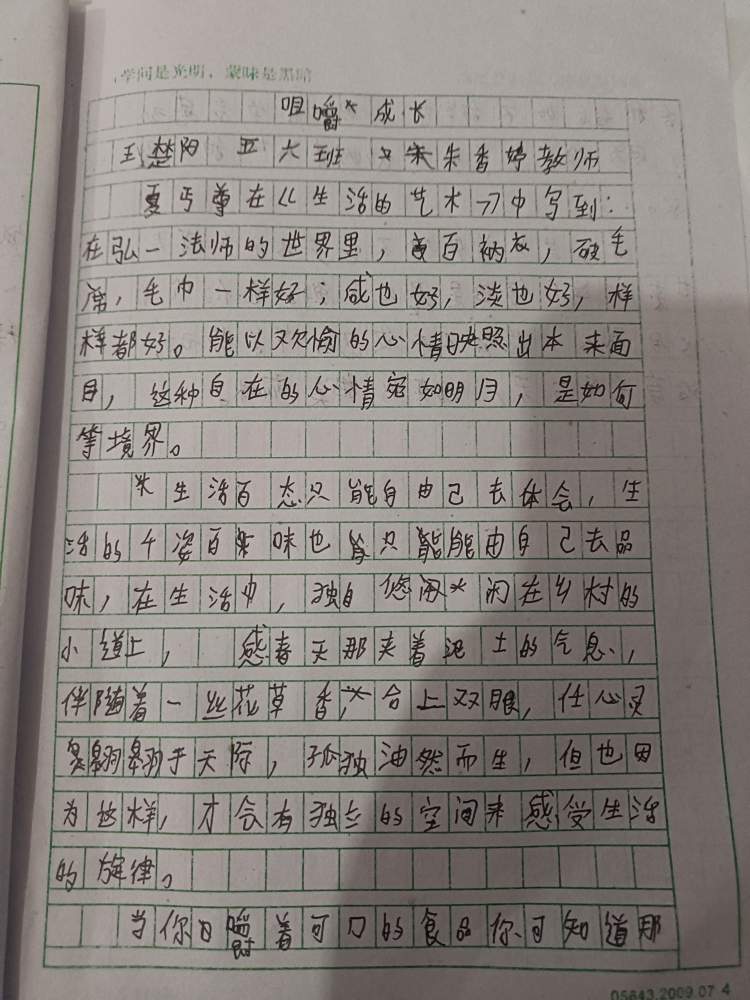 学问是光明，蒙昧是黑暗
咀嚼成长
王楚阳 五六班 朱香婷教师
夏丏尊在《生活的艺术》中写到：
在弘一法师的世界里，百衲衣，破毛
席，毛巾一样好；咸也好，淡也好，样
样都好。能以欢愉的心情映照出本来面
目，这种自在的心情宛如明月，是如何
等境界。
生活百态只能自由己去体会，生
活的千姿百味也只能由自己去品
味，在生活中，独自悠闲在乡村的
小道上，感春天那夹着泥土的气息，
伴随着一丝花草香，合上双眼，任心灵
翱翔于天际，孤独油然而生，但也因
为这样，才会有独立的空间来感受生活
的旋律。
当你咀嚼着可口的食品你可知道那
05643.2009.07 4